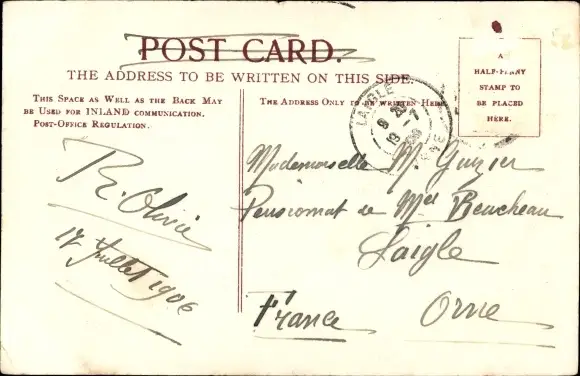 POST CARD.
THE ADDRESS TO BE WRITTEN ON THIS SIDE.
THIS SPACE AS WELL AS THE BACK MAY
BE USED FOR INLAND COMMUNICATION.
POST-OFFICE REGULATION.
THE ADDRESS ONLY TO BE WRITTEN HERE.
A
HALF-PENNY
STAMP TO
BE PLACED
HERE.
LAIGLE
9 20
19 -7
06
ORNE
R. Olivié
17 Juillet 1906
Mademoiselle M. Guzien
Pensionnat de Melle Beucheau
Laigle
France Orne